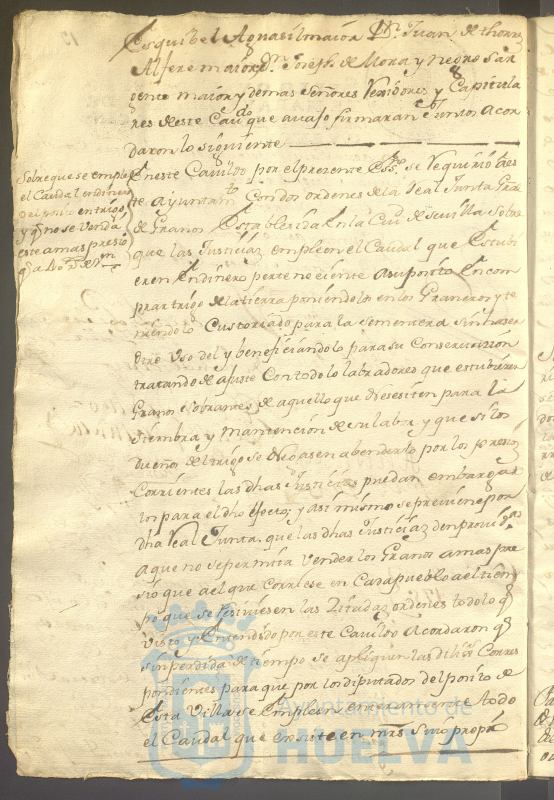 Esquibel Aguasil maior Dn Juan de thorres
Alferemaior Dn Joseph de Mora y Pedro Sar
gento Maior y demas Señores Rexidores y Capitula
res deste Cavdo que avajo firmaran e Juntos Acor
daron lo siguiente
Sobre que se emplee
el Caudal en dinero
del posito en trigo,
y qe no se venda
este a mas presio
En este Cavildo por el presente Essno se Requirio a es
te Ayuntamto Con dos ordenes de la Real Junta Gral
de Granos Establesida En la Ciud de Sevilla Sobre
que las Justiciaz empleen el Caudal que Estubi
eren En dinero perteneciente A su posito En com
prar trigo de la tierra poniendolo en los Graneros y te
niendolo Custodiado para la Sementera Sin haser
otro Uso del y beneficiandolo para su Conservassion
tratando de ajuste Con todo lo labradores que estubieren
Granos Sobrantes de aquello que nesesiten para la
Siembra y Mantencion de su labor y que si los
dueños del trigo se negasen a benderlo por los presios
Corrientes las dhas Justicias puedan embargar
los para el dho efecto; y asi mismo se previene por
dha Real Junta que las dhas Justiciaz den provida
a que no se permita Vender los Granos a mas pre
sio que a el que Corriese en Cada pueblo a el tiem
po que se Resiviesen las Zitadaz ordenes todo lo qe
Visto y Entendido por este Cavildo Acordaron qe
sin perdida de tiempo se apliquen las dilixs Corres
pondientes para que por los diputados del posito de
Esta Villa se Emplee enteramente todo
el Caudal que existe en mrs Suio propio
Ayuntamiento de
HUELVA